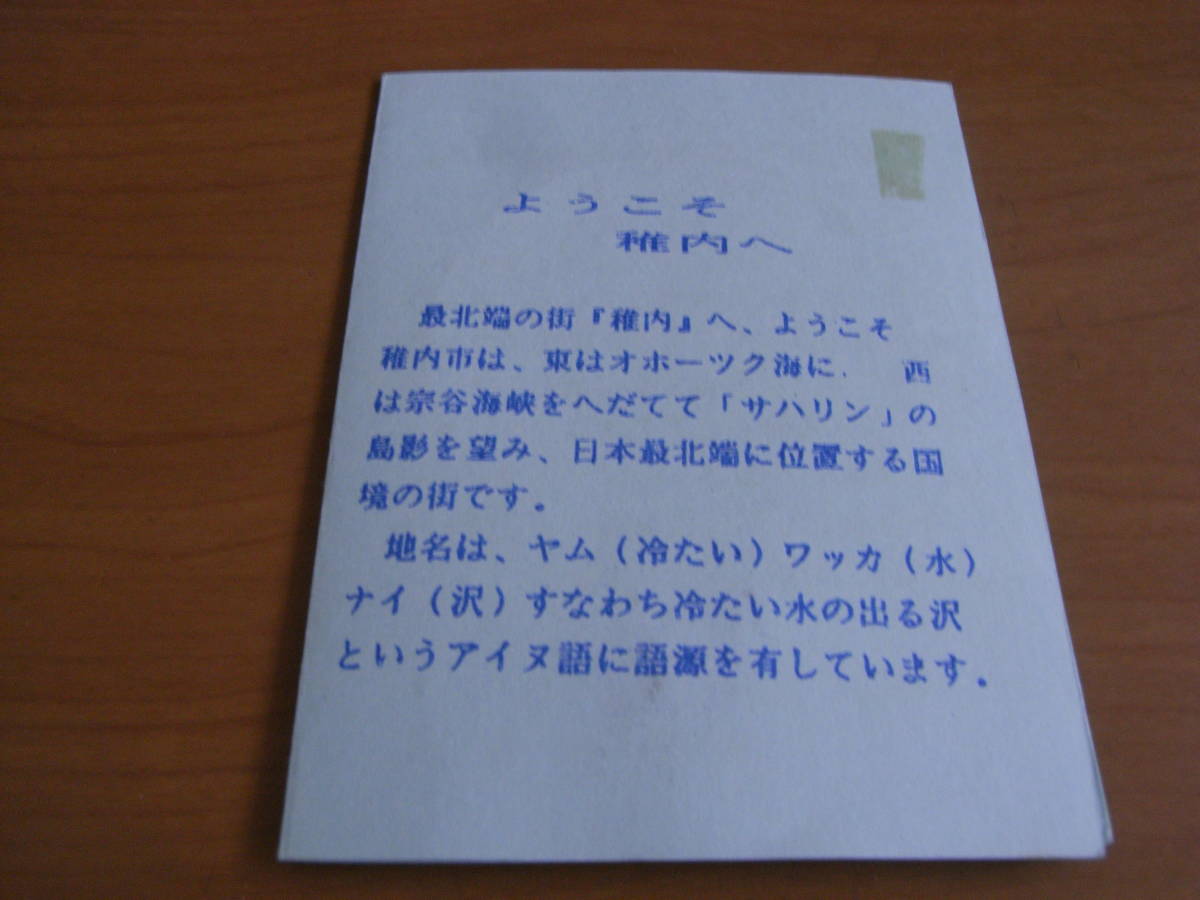 ようこそ
稚内へ
最北端の街『稚内』へ、ようこそ
稚内市は、東はオホーツク海に、 西
は宗谷海峡をへだてて「サハリン」の
島影を望み、日本最北端に位置する国
境の街です。
地名は、ヤム(冷たい)ワッカ(水)
ナイ(沢)すなわち冷たい水の出る沢
というアイヌ語に語源を有しています。